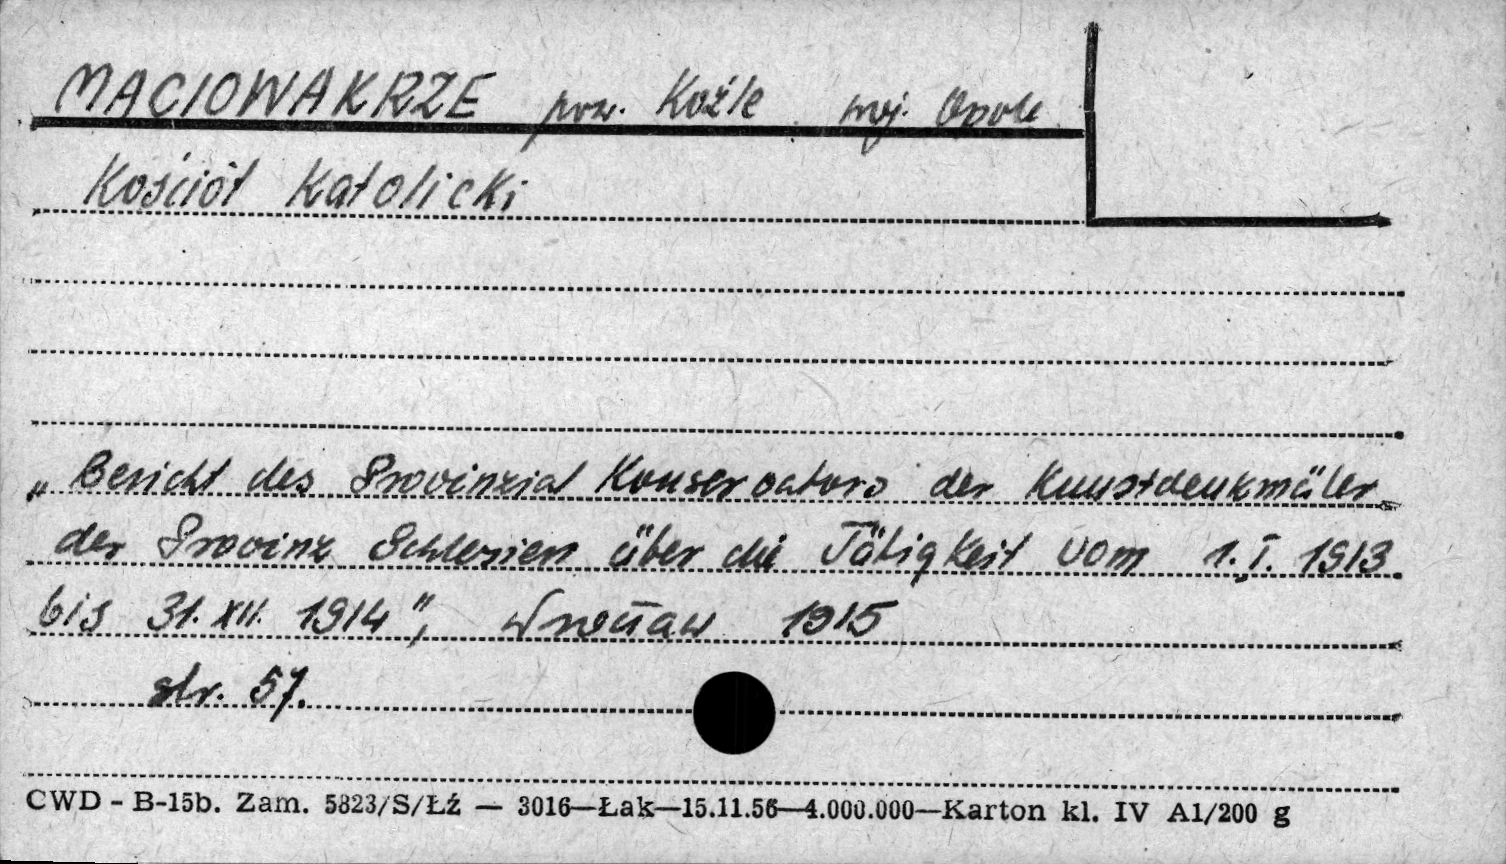 MACIOWAKRZE pow. Koźle woj. Opole
Kościół Katolicki
„Bericht des Provinzial Konservators der Kunstdenkmäler
der Provinz Schlesien über die Tätigkeit vom 1.I. 1913
bis 31.XII. 1914", Wrocław 1915
str. 57.
CWD - B-15b. Zam. 5823/S/Łź — 3016—Łak—15.11.56—4.000.000—Karton kl. IV A1/200 g